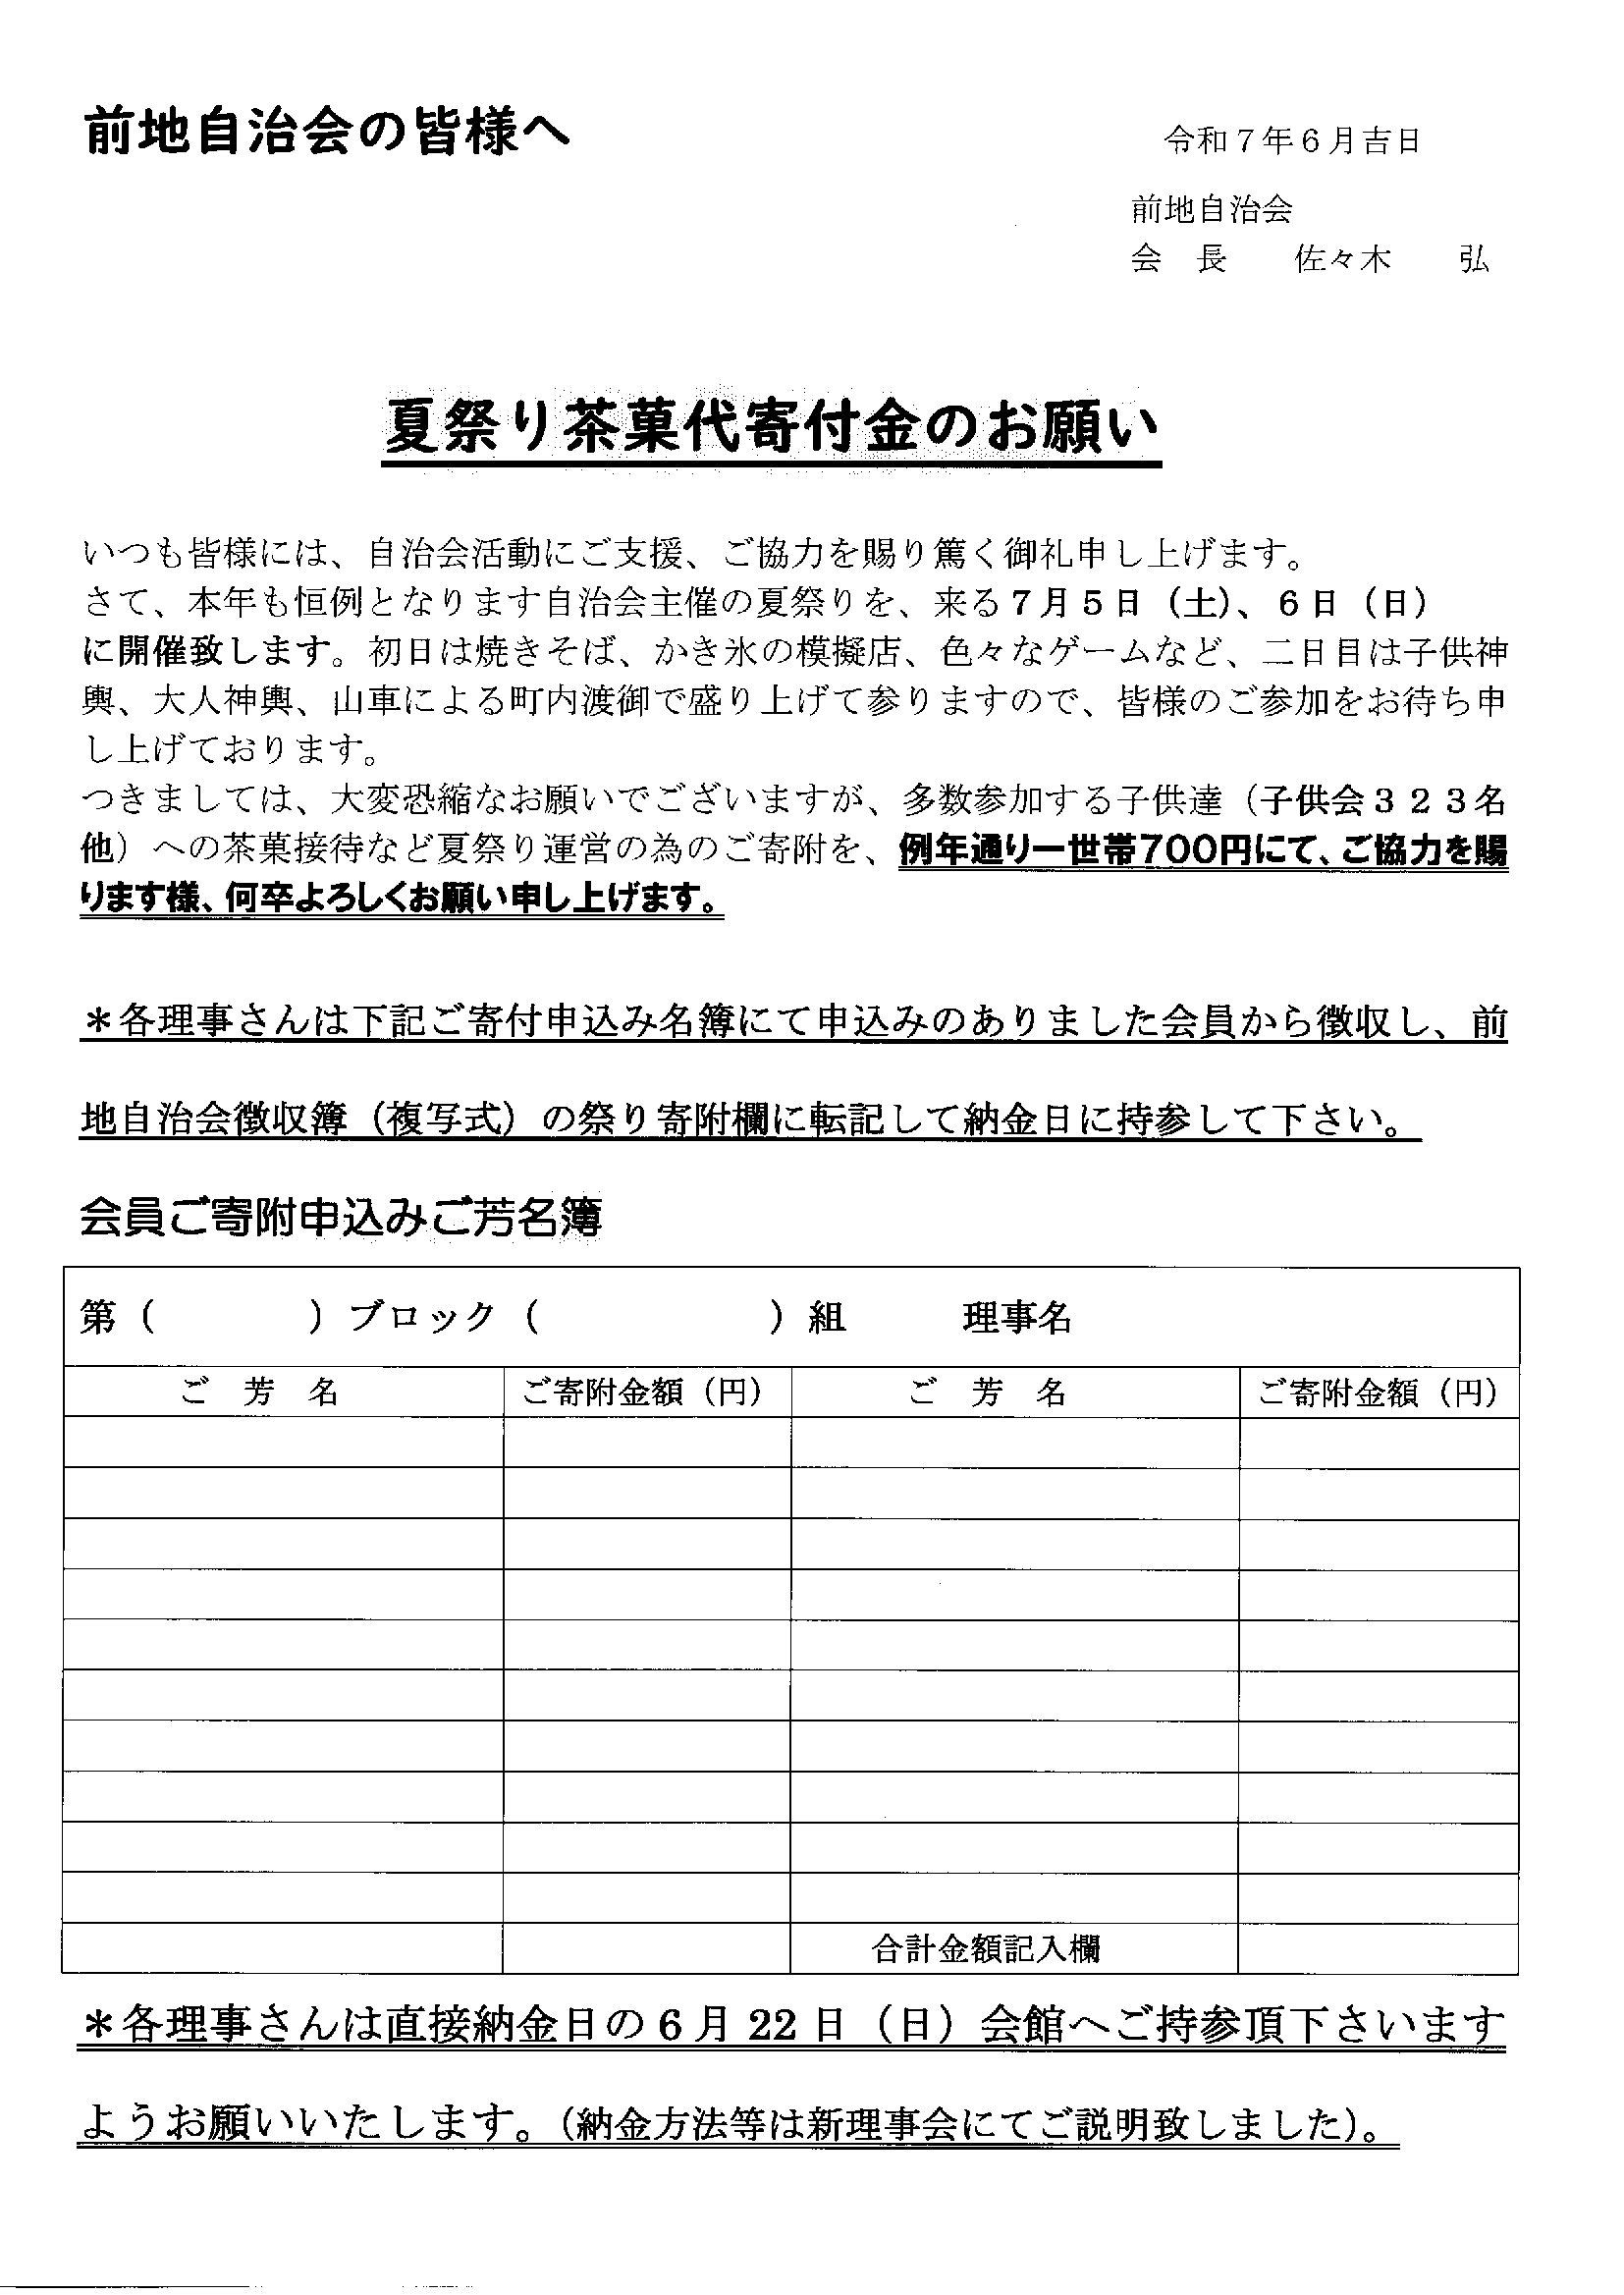 前地自治会の皆様へ
令和７年６月吉日
前地自治会
会　長　　佐々木　　弘
夏祭り茶菓代寄付金のお願い
いつも皆様には、自治会活動にご支援、ご協力を賜り篤く御礼申し上げます。
さて、本年も恒例となります自治会主催の夏祭りを、来る７月５日（土）、６日（日）
に開催致します。初日は焼きそば、かき氷の模擬店、色々なゲームなど、二日目は子供神
輿、大人神輿、山車による町内渡御で盛り上げて参りますので、皆様のご参加をお待ち申
し上げております。
つきましては、大変恐縮なお願いでございますが、多数参加する子供達（子供会３２３名
他）への茶菓接待など夏祭り運営の為のご寄附を、例年通り一世帯700円にて、ご協力を賜
ります様、何卒よろしくお願い申し上げます。
＊各理事さんは下記ご寄付申込み名簿にて申込みのありました会員から徴収し、前
地自治会徴収簿（複写式）の祭り寄附欄に転記して納金日に持参して下さい。
会員ご寄附申込みご芳名簿
第（　　　　）ブロック（　　　　　　）組　　　理事名
ご　芳　名　ご寄附金額（円）　ご　芳　名　ご寄附金額（円）
合計金額記入欄
＊各理事さんは直接納金日の６月22日（日）会館へご持参頂下さいます
ようお願いいたします。（納金方法等は新理事会にてご説明致しました）。